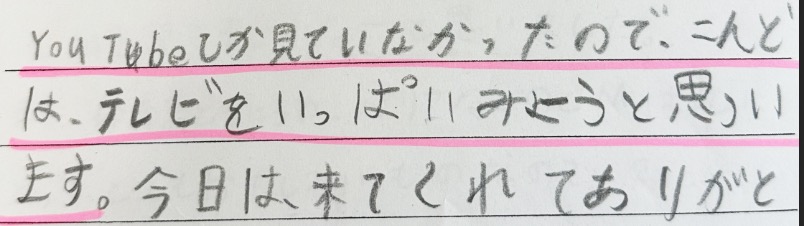 YouTubeしか見ていなかったので、こんど
は、テレビをいっぱいみようと思うい
ます。今日は、来てくれてありがと